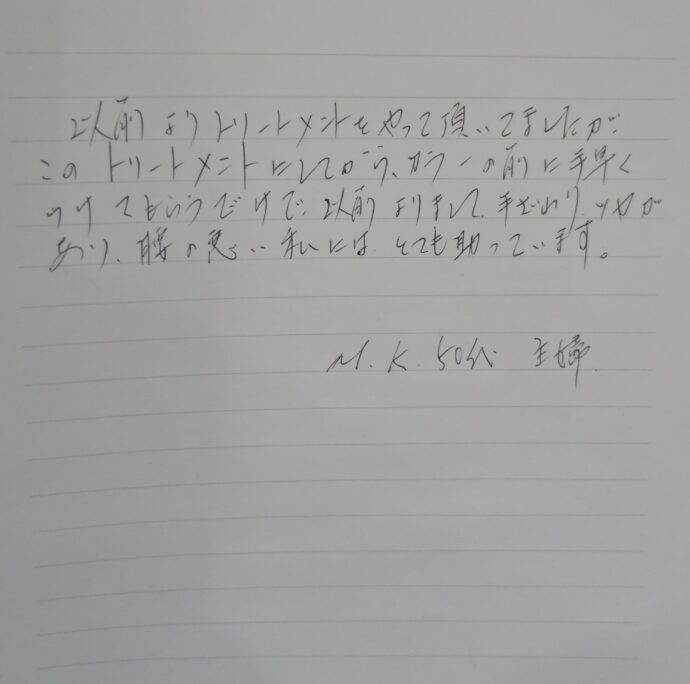 以前よりトリートメントをやって頂いてましたが
このトリートメントにしてから、カラーの前に手早く
つけてもらうだけで、以前よりまして、手ざわり、ツヤが
あり、腰の悪い私には、とても助っています。
M.K. 50代 主婦